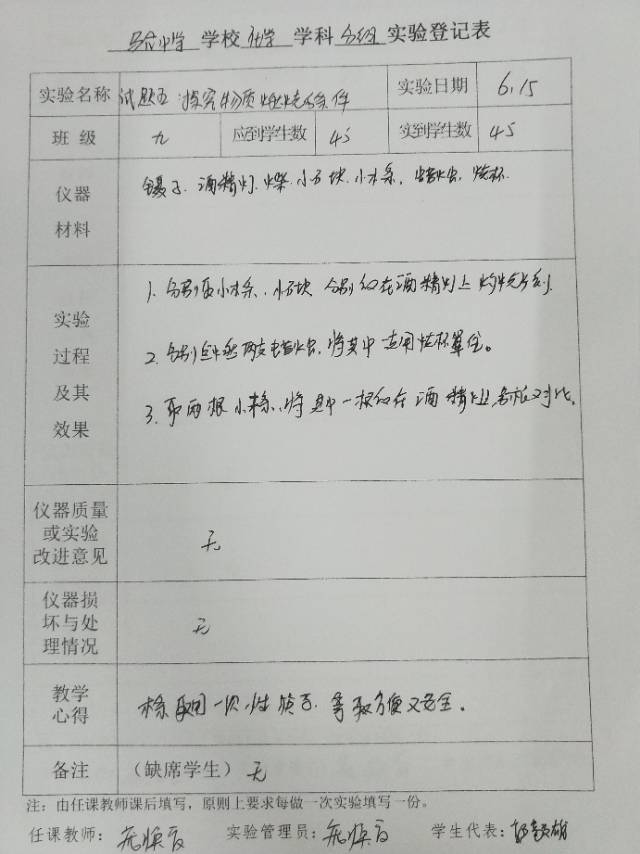 中学 学校 化学 学科 分组 实验登记表
实验名称 试题五 探究物质燃烧的条件 实验日期 6.15
班 级 九 应到学生数 45 实到学生数 45
仪器
材料
镊子. 酒精灯. 小石块. 小木条. 蜡烛. 烧杯.
实验
过程
及其
效果
1. 分别取小木条. 小石块 分别 在酒精灯上灼烧片刻.
2. 分别点燃两支蜡烛. 将其中一支用烧杯罩住。
3. 取两根小木条. 将其中一根 在酒精灯上 对比.
仪器质量
或实验
改进意见
无
仪器损
坏与处
理情况
无
教学
心得
木条取用一次性筷子. 拿取方便又安全。
备注 (缺席学生) 无
注：由任课教师课后填写，原则上要求每做一次实验填写一份。
任课教师： 实验管理员： 学生代表：